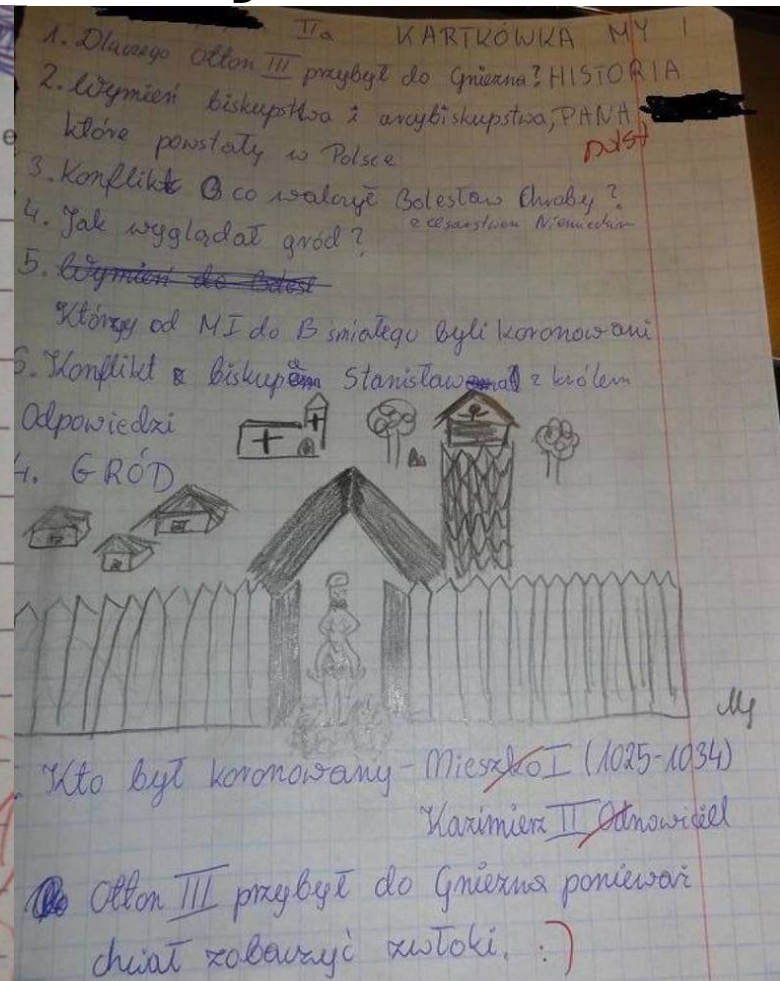 IIa KARTKÓWKA MY 1
1. Dlaczego Otton III przybył do Gniezna? HISTORIA
2. Wymień biskupstwa i arcybiskupstwa, PANA
które powstały w Polsce
3. Konflikt O co walczył Bolesław Chraby?
z cesarstwem Niemieckim
4. Jak wyglądał gród?
5. Wymień do
Którzy od MI do B śmiałego byli koronowani
6. Konflikt z biskupem Stanisława z królem
Odpowiedzi
4. GRÓD
Kto był koronowany - Mieszko I (1025-1034)
Kazimierz II Odnowiciel
Otton III przybył do Gniezna ponieważ
chciał zobaczyć zwłoki. :)